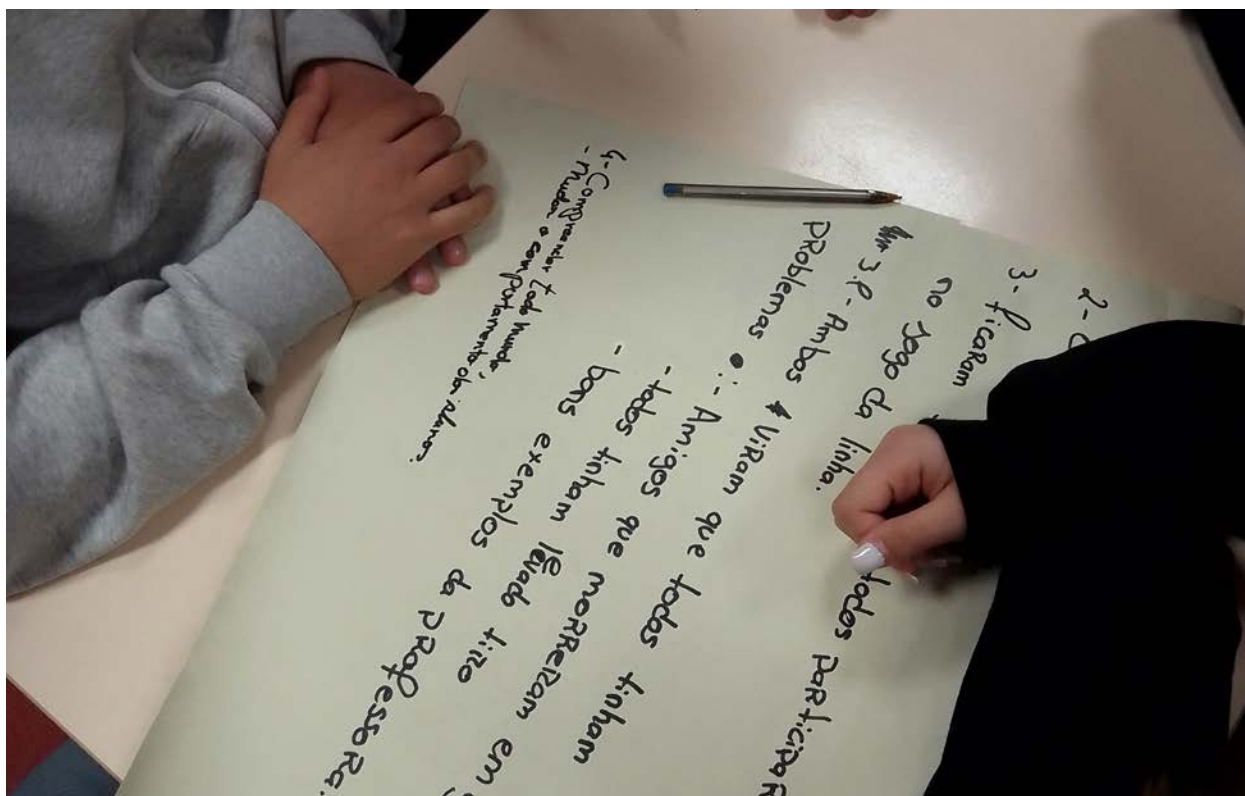 2-
3- ficaram todos participar
no jogo da linha.
3.1 - Ambos viram que todos tinham
problemas : - Amigos que morreram em
- todos tinham lêvado tiro
- bons exemplos da professora.
4- Compreender todo mundo,
- Mudar o comportamento